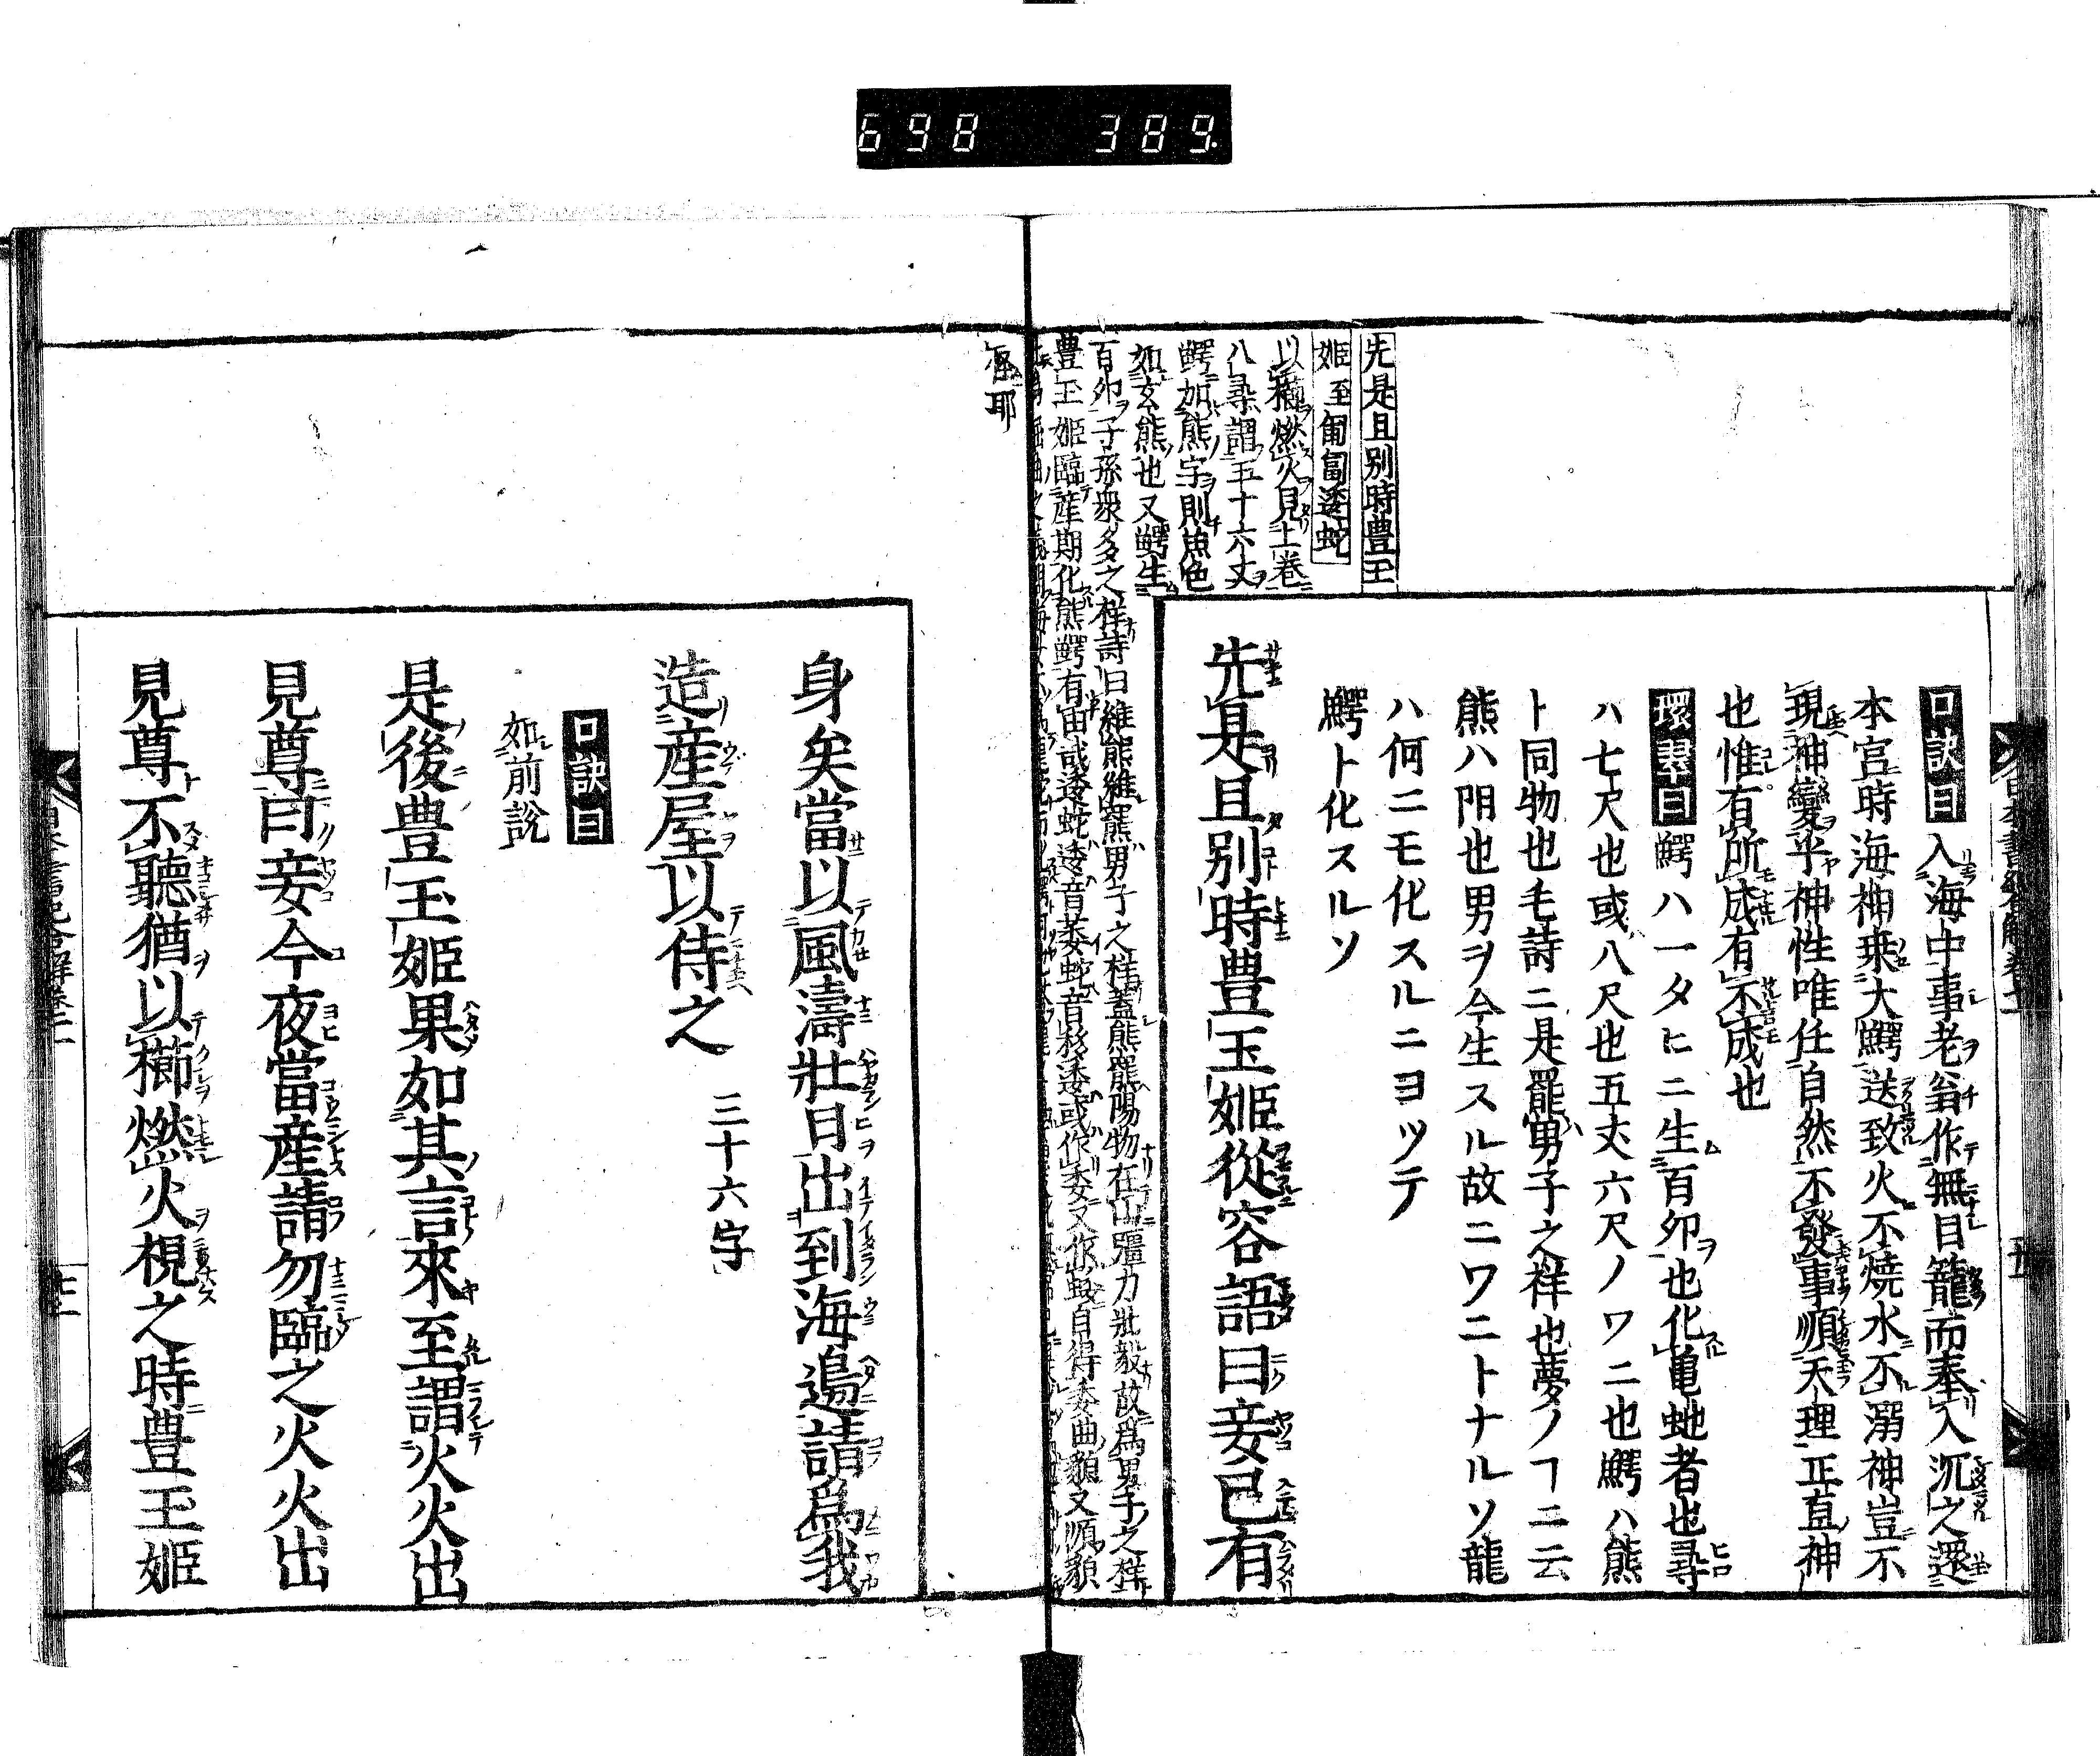 698 389
口訣曰入海中事老翁作無目籠而奉入沉之還
本宮時海神乗大鰐送致火不焼水不溺神豈不
現神變乎神性唯任自然不發事順天理正直神
也惟有所成有不成也
環翠曰鰐ハ一タヒニ生百卵ヲ也化亀虵者也尋
ハ七尺也或八尺也五丈六尺ノワニ也鰐ハ熊
ト同物也毛詩ニ是羆男子之祥也夢ノヿニ云
熊ハ陽也男ヲ今生スル故ニワニトナルソ龍
ハ何ニモ化スルニヨツテ
鰐ト化スルソ
先是且別時豊玉姫從容語曰妾已有
先是且別時豊玉
姫至匍匐逶蛇
以櫛燃火見上巻
八尋謂五十六丈
鰐加熊字則魚色
如玄熊也又鰐生
百卵子孫衆多之祥詩曰維熊維羆男子之祥蓋熊羆陽物在山彊力壯毅故爲男子之祥
豊玉姫臨産期化熊鰐有由哉逶蛇逶音萎蛇音移逶或作委又作蜲自得委曲貌又順貌
海耶
身矣當以風濤壯日出到海邊請爲我
造産屋以待之 三十六字
口訣曰
如前說
是後豊玉姫果如其言來至謂火火出
見尊曰妾今夜當産請勿臨之火火出
見尊不聽猶以櫛燃火視之時豊玉姫